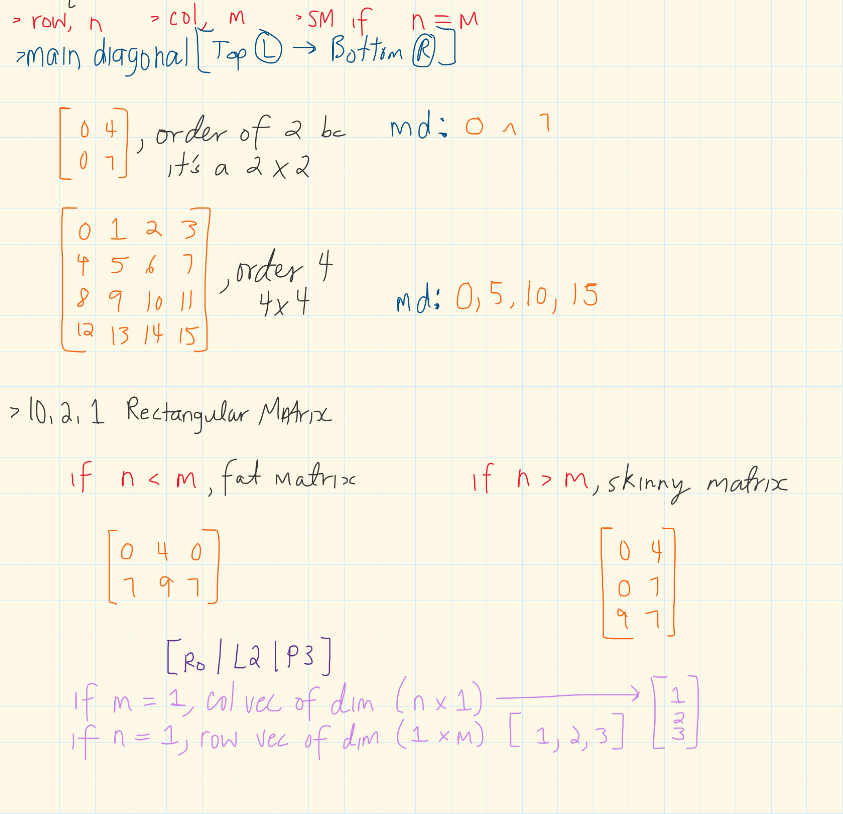 > row, n > col, m > SM if n = M
>main diagonal [Top L → Bottom R]
[0 4
0 7], order of 2 bc md: 0 ^ 7
it's a 2 x 2
[0 1 2 3
4 5 6 7
8 9 10 11
12 13 14 15], order 4
4x4 md: 0, 5, 10, 15
> 10, 2, 1 Rectangular Matrix
if n < m, fat matrix if n > m, skinny matrix
[0 4 0
7 9 7]
[0 4
0 7
9 7]
[R0 | L2 | P3]
if m = 1, col vec of dim (n x 1) → [1
2
3]
if n = 1, row vec of dim (1 x M) [1, 2, 3]